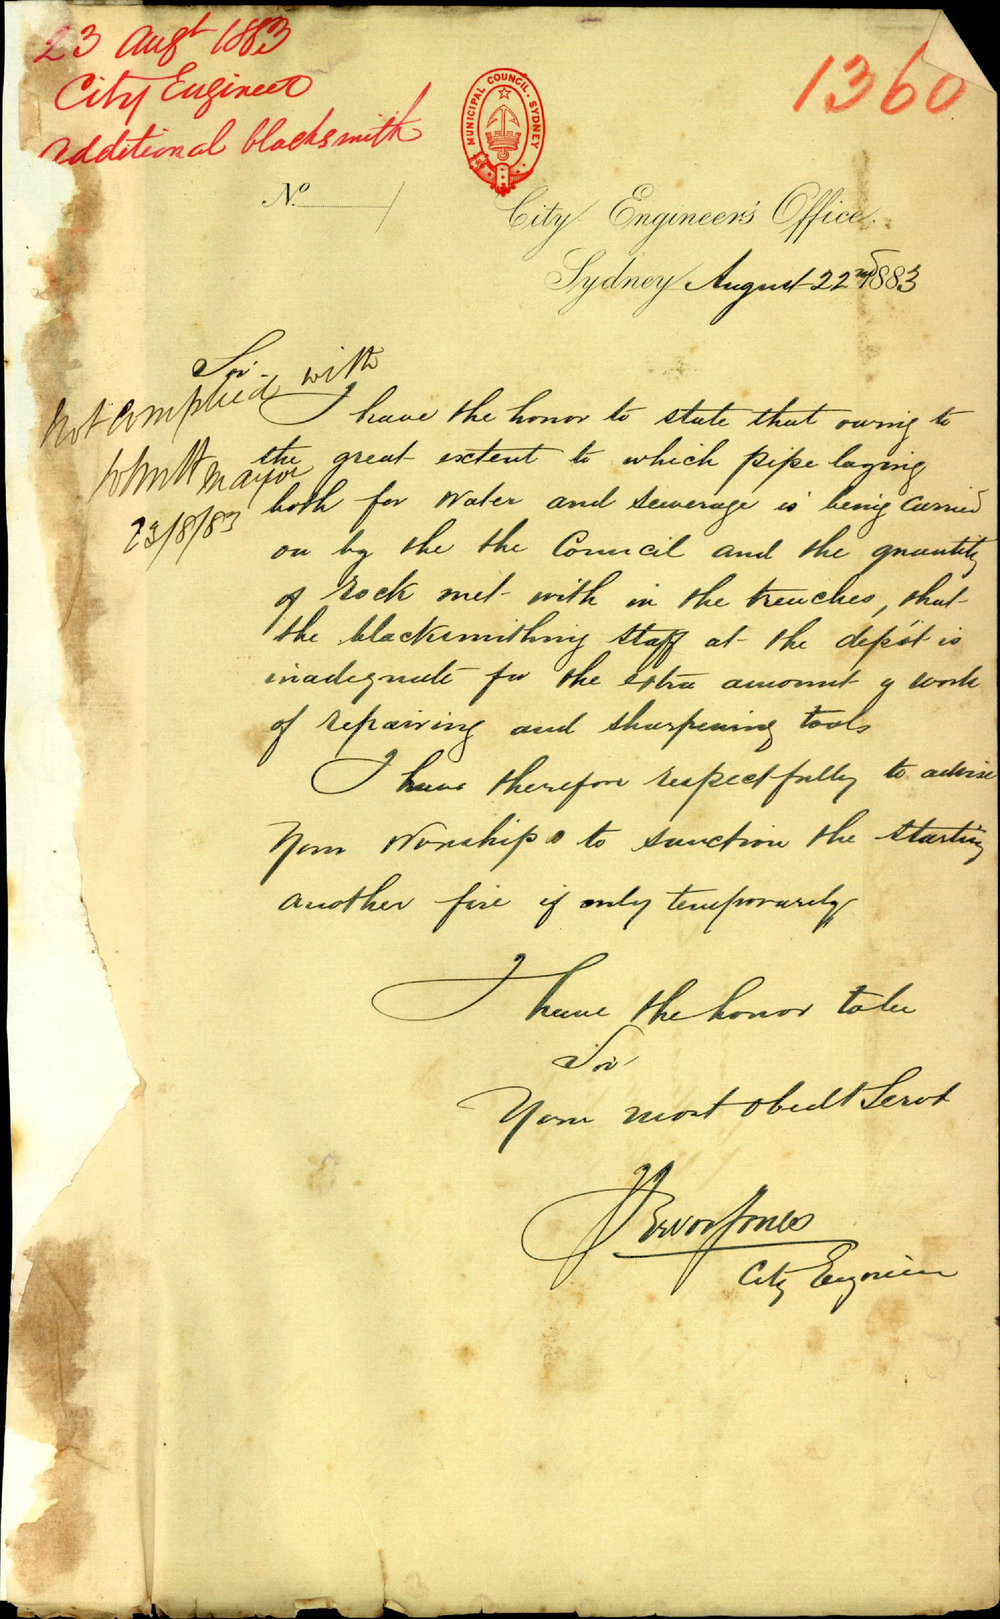 23 Augt 1883
City Engineer
Additional blacksmith
1360
MUNICIPAL COUNCIL. SYDNEY
No.
City Engineer's Office.
Sydney August 22nd 1883
Sir
Not complied with
Mayor
23/8/83
I have the honor to state that owing to
the great extent to which pipe laying
both for water and sewerage is being carried
on by the the Council and the quantity
of rock met with in the trenches, that
the blacksmithing staff at the depôt is
inadequate for the extra amount of work
of repairing and sharpening tools
I have therefore respectfully to advise
Your Worship to sanction the starting
another fire if only temporarily
I have the honor to be
Sir
Your most obedt Servt
Trevor Jones
City Engineer